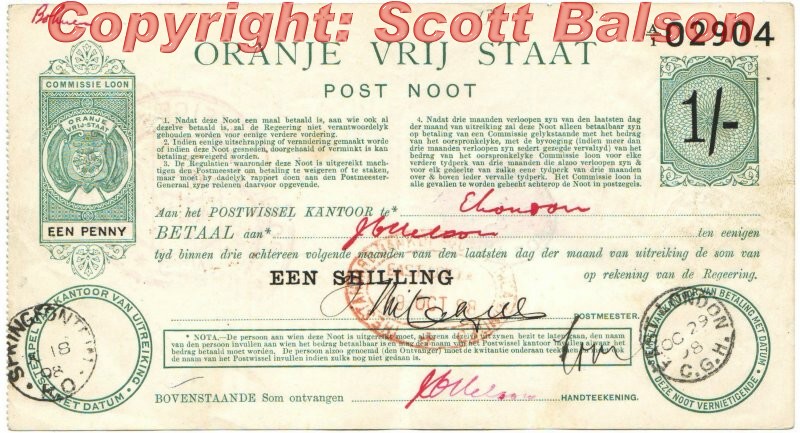 Copyright: Scott Balson
A/1 02904
ORANJE VRIJ STAAT
POST NOOT
COMMISSIE LOON
ORANJE
VRIJ-STAAT
EEN PENNY
1/-
1. Nadat deze Noot een maal betaald is, aan wie ook al
dezelve betaald is, zal de Regeering niet verantwoordelijk
gehouden worden voor eenige verdere vordering.
2. Indien eenige uitschrapping of verandering gemaakt worde
of indien deze Noot gesneden, doorgehaald of vermunkt is kan
betaling geweigerd worden.
3. De Regulatien waaronder deze Noot is uitgereikt machti-
gen den Postmeester om betaling te weigeren of te staken,
maar moet hy dadelyk rapport doen aan den Postmeester-
Generaal zyne redenen daarvoor opgevende.
4. Nadat drie maanden verloopen zyn van den laatsten dag
der maand van uitreiking zal deze Noot alleen betaalbaar zyn
op betaling van een Commissie gelykstaande met het bedrag
van de oorspronkelyke, met de byvoeging (indien meer dan
drie maanden verloopen zyn sedert gezegde vervaltyd) van het
bedrag van het oorspronkelyke Commissie loon voor elke
verdere tydperk van drie maanden die alzoo verloopen zyn &
voor elk gedeelte van zulke eene tydperk van drie maanden
over & boven ieder vervalle tydperk. Het Commissie loon in
alle gevallen te worden gehecht achterop de Noot in postzegels.
Aan het POSTWISSEL KANTOOR te*
BETAAL aan* ten eenigen
tyd binnen drie achtereen volgende maanden van den laatsten dag der maand van uitreiking de som van
EEN SHILLING op rekening van de Regeering.
OCT 98
POSTMEESTER.
* NOTA.—De persoon aan wien deze Noot is uitgereikt moet, alvorens deze uit zynen bezit te laten gaan, den naam
van den persoon invullen aan wien het bedrag betaalbaar is en voor het Postwissel kantoor invullen alwaar het
bedrag betaald moet worden. De persoon alzoo genoemd (den Ontvanger) moet de kwitantie onderaan teekenen
de naam van het Postwissel invullen indien zulks nog niet gedaan is.
STEMPEL VAN KANTOOR VAN UITREIKING
MET DATUM
SPRINGFONTEIN
18
98
EAST LONDON
OC 29
98
C.G.H.
VAN BETALING MET DATUM
DEZE NOOT VERNIETIGENDE
BOVENSTAANDE Som ontvangen HANDTEEKENING.